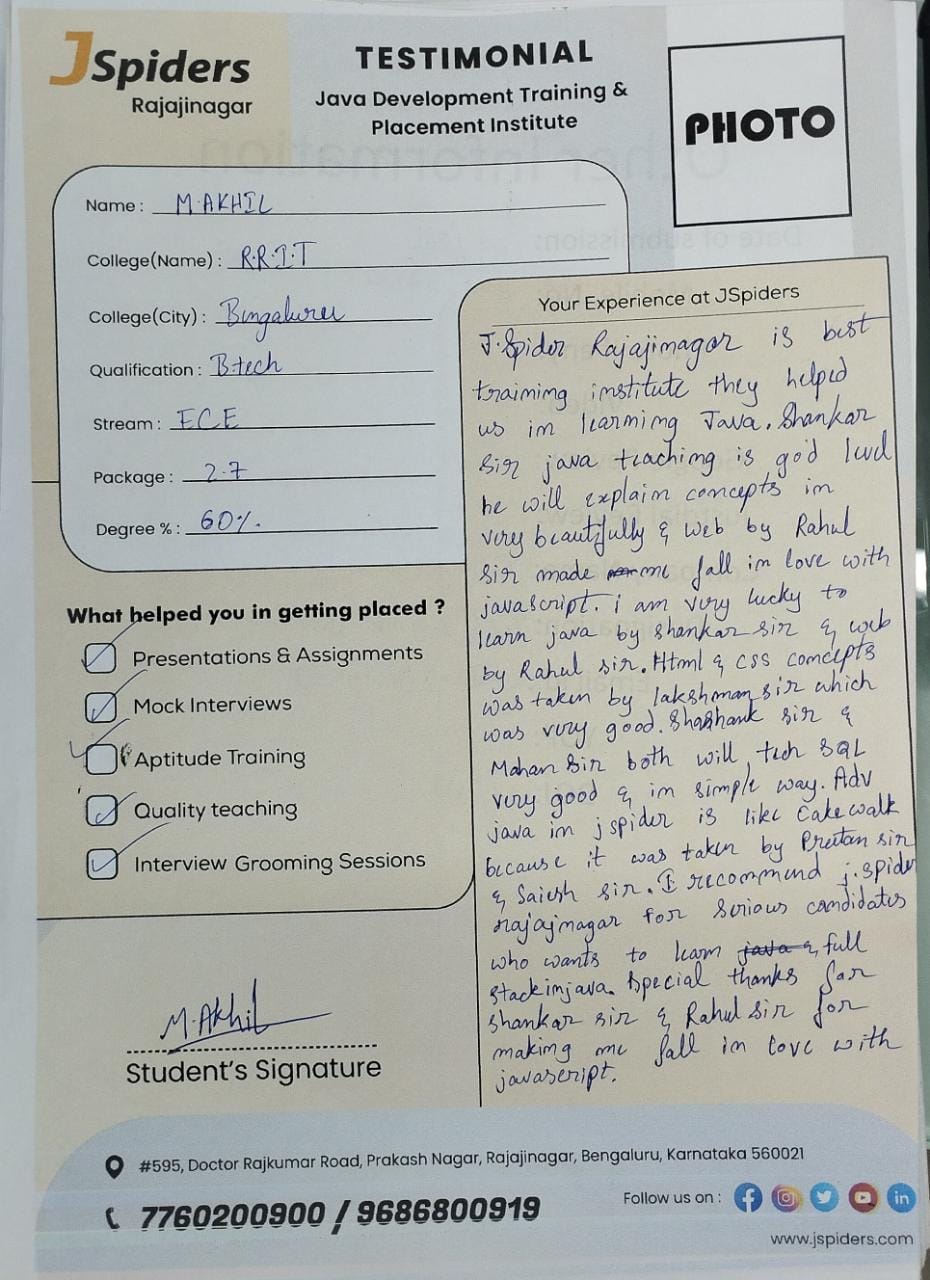 JSpiders
Rajajinagar
TESTIMONIAL
Java Development Training &
Placement Institute
PHOTO
Name : M.AKHIL
College(Name) : R.R.I.T
College(City) : Bengaluru
Qualification : B.tech
Stream : ECE
Package : 2.7
Degree % : 60%.
What helped you in getting placed ?
Presentations & Assignments
Mock Interviews
Aptitude Training
Quality teaching
Interview Grooming Sessions
M.Akhil
Student's Signature
Your Experience at JSpiders
J.Spider Rajajinagar is best
training institute they helped
us in learning Java. Shankar
sir java teaching is god level
he will explain concepts in
very beautifully & web by Rahul
sir made me fall in love with
javascript. i am very lucky to
learn java by shankar sir & web
by Rahul sir. Html & css concepts
was taken by lakshman sir which
was very good. Shashank sir &
Mohan sir both will tech SQL
very good & in simple way. Adv
java in jspider is like Cakewalk
because it was taken by Preetan sir
& Saiesh sir. I recommend j.spider
rajajnagar for serious candidates
who wants to learn java & full
stackinjava. special thanks for
shankar sir & Rahul sir for
making me fall in love with
javascript.
#595, Doctor Rajkumar Road, Prakash Nagar, Rajajinagar, Bengaluru, Karnataka 560021
7760200900 / 9686800919
Follow us on :
www.jspiders.com